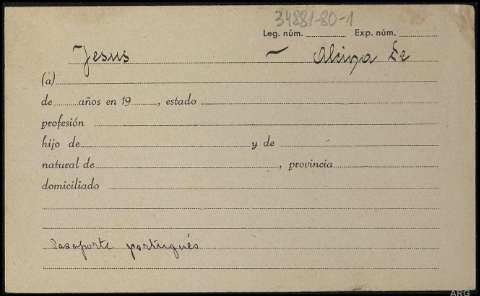 34881-80-1
Leg. núm. Exp. núm.
Jesus - Alsina Le
(a)
de años en 19 , estado
profesión
hijo de y de
natural de , provincia
domiciliado
Pasaporte portugués
ARG